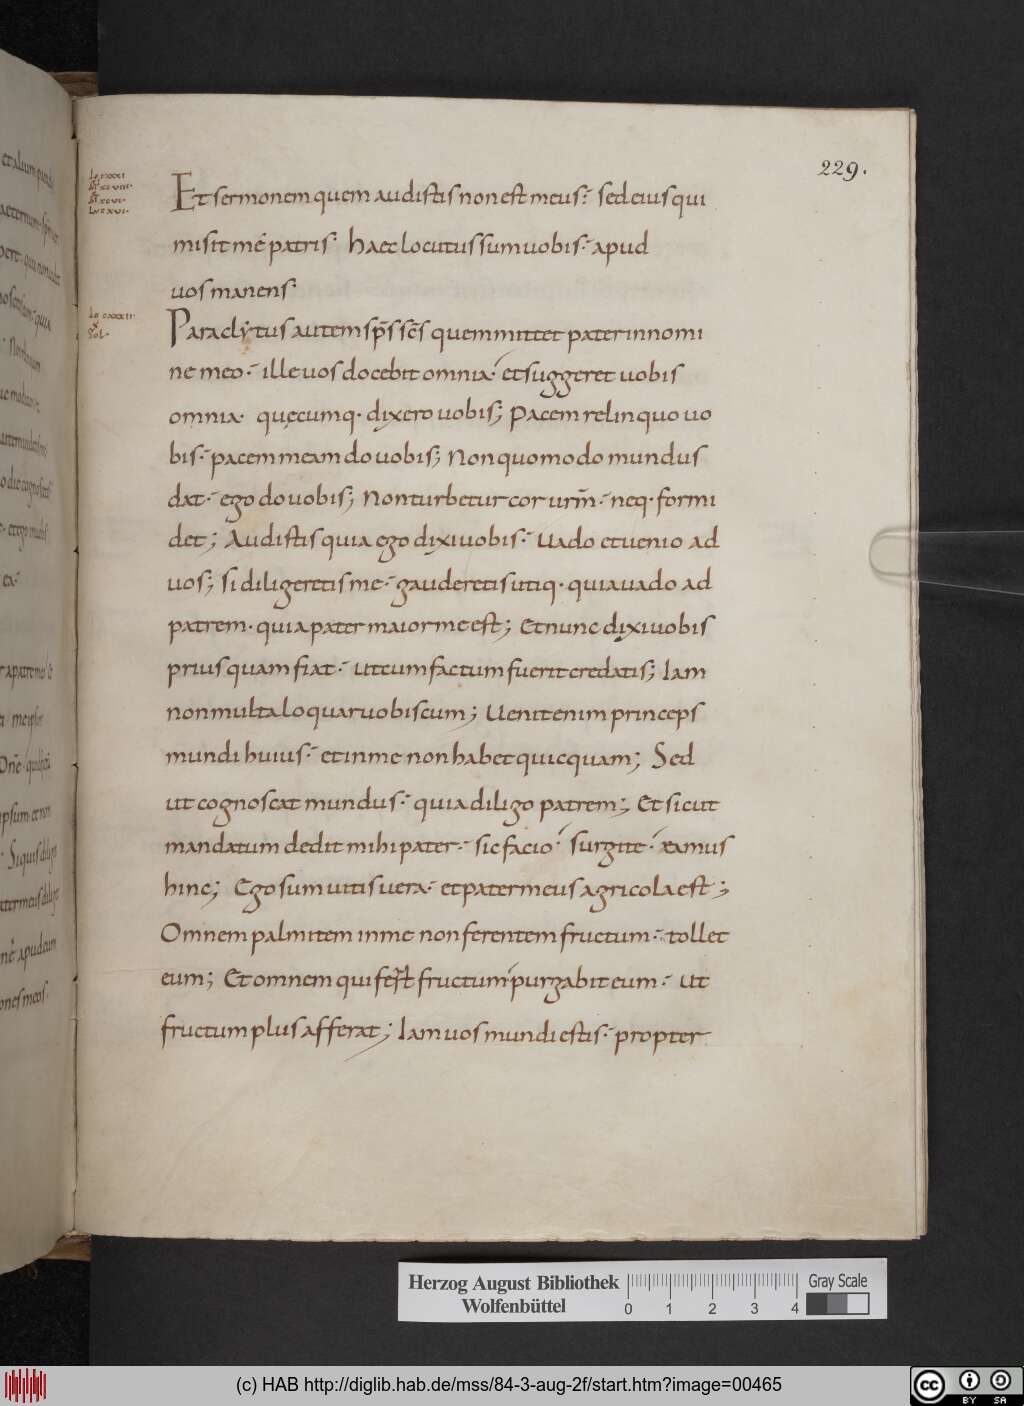 229.
Et sermonem quem audistis non est meus. sed eius qui
misit me patris. Haec locutus sum uobis. apud
uos manens.
Paraclytus autem sp̄s sc̄s quem mittet pater in nomi
ne meo. ille uos docebit omnia. et suggeret uobis
omnia. quęcumq. dixero uobis; Pacem relinquo uo
bis. pacem meam do uobis; Non quomodo mundus
dat. ego do uobis; Non turbetur cor urm̄. neq. formi
det; Audistis quia ego dixi uobis. Uado et uenio ad
uos; Si diligeretis me. gauderetis utiq. quia uado ad
patrem. quia pater maior me est; Et nunc dixi uobis
prius quam fiat. ut cum factum fuerit credatis; Iam
non multa loquar uobiscum; Uenit enim princeps
mundi huius. et in me non habet quicquam; Sed
ut cognoscat mundus. quia diligo patrem; Et sicut
mandatum dedit mihi pater. sic facio. surgite. eamus
hinc; Ego sum uitis uera. et pater meus agricola est;
Omnem palmitem in me non ferentem fructum. tollet
eum; Et omnem qui fert fructum purgabit eum. ut
fructum plus afferat; Iam uos mundi estis. propter
Herzog August Bibliothek
Wolfenbüttel
0 1 2 3 4
Gray Scale
(c) HAB http://diglib.hab.de/mss/84-3-aug-2f/start.htm?image=00465
cc BY SA